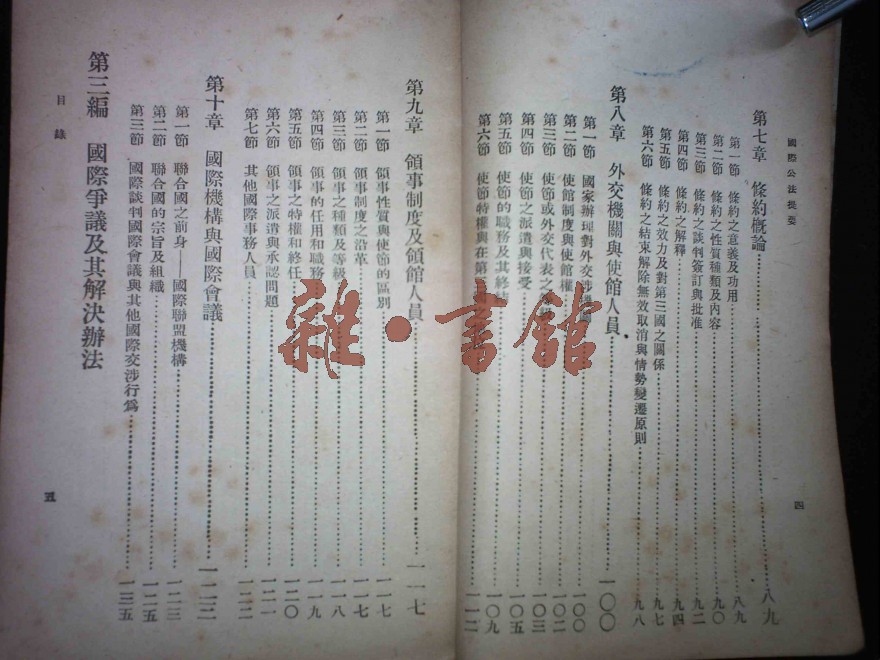 國際公法提要
四
第七章 條約概論 八九
第一節 條約之意義及功用 八九
第二節 條約之性質種類及內容 九〇
第三節 條約之談判簽訂與批准 九二
第四節 條約之解釋 九四
第五節 條約之效力及對第三國之關係 九七
第六節 條約之結束解除無效取消與情勢變遷原則 九八
第八章 外交機關與使館人員 一〇〇
第一節 國家辦理對外交涉 一〇〇
第二節 使館制度與使館權 一〇二
第三節 使節或外交代表之 一〇三
第四節 使節之派遣與接受 一〇五
第五節 使節的職務及其終 一〇九
第六節 使節特權與在第 一一二
第九章 領事制度及領館人員 一一七
第一節 領事性質與使節的區別 一一七
第二節 領事制度之沿革 一一七
第三節 領事之種類及等級 一一八
第四節 領事的任用和職務 一一九
第五節 領事之特權和終任 一二〇
第六節 領事之派遣與承認問題 一二一
第七節 其他國際事務人員 一二二
第十章 國際機構與國際會議 一二三
第一節 聯合國之前身——國際聯盟機構 一二三
第二節 聯合國的宗旨及組織 一二五
第三節 國際談判國際會議與其他國際交涉行爲 一三五
第三編 國際爭議及其解決辦法
目錄
五
雜·書館